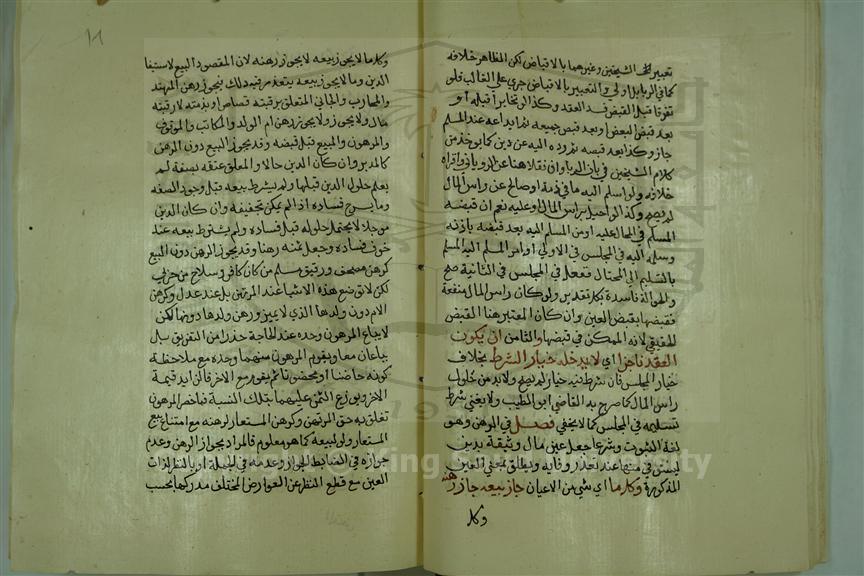 تعبير الشيخين وغيرهما بالاقباض لكن الظاهر خلافه
كما في الربا بل اولى والتعبير بالاقباض جري على الغالب فلو
تفرقا قبل القبض فسد العقد وكذا لو تخايرا قبله او
بعد قبض البعض وبعد قبض جميعه لو اودعه عند المسلم
جاز وكذا بعد قبضه لو رده اليه عن دين كما يؤخذ من
كلام الشيخين في باب الربا وان نقلا هنا عن الروياني واقراه
خلافه ولو اسلم اليه ما في ذمته او صالح عن راس المال
لم يصح وكذا لو احيل براس المال او عليه نعم ان قبضه
المسلم في الحوالة عليه او من المسلم اليه بعد قبضه باذنه
وسلمه اليه في المجلس في الاولى او امر المسلم اليه المسلم
بالتسليم الى المحتال ففعل في المجلس في الثانية صح
والحوالة فاسدة بكل تقدير ولو كان راس المال منفعة
فقبضها بقبض العين وان كان المعتبر هنا القبض
الحقيقي لانه الممكن في قبضها والثامن ان يكون
العقد ناجزا اي لا يدخله خيار الشرط بخلاف
خيار المجلس فان شرط فيه خيار لم يصح ولا بد من حلول
راس المال كما صرح به القاضي ابو الطيب ولا يغني شرط
تسليمه في المجلس كما لا يخفى فصل في الرهن وهو
لغة الثبوت وشرعا جعل عين مال وثيقة بدين
ليستوفى منها عند تعذر وفايه ويطلق بمعنى العين
المذكورة وكل ما اي شي من الاعيان جاز بيعه جاز رهنه
وكل
وكل ما لا يجوز بيعه لا يجوز رهنه لان المقصود البيع لاستيفا
الدين وما لا يجوز بيعه يتعذر فيه ذلك فيجوز رهن المرتد
والمحارب والجاني المتعلق برقبته قصاص او بذمته لا رقبته
مال ولا يجوز رهن ام الولد والمكاتب والموقوف
والمرهون والمبيع قبل قبضه وقد يجوز البيع دون الرهن
كالمدبر وان كان الدين حالا والمعلق عتقه بصفة لم
يعلم حلول الدين قبلها ولم يشرط بيعه قبل وجود الصفه
وما يسرع فساده اذا لم يمكن تجفيفه وان كان الدين
موجلا لا يحتمل حلوله قبل فساده ولم يشترط بيعه عند
خوف فساده وجعل ثمنه رهنا وقد يجوز الرهن دون البيع
كرهن مصحف ورقيق مسلم من كان كافر وسلاح من حربي
لكن لا توضع هذه الاشيا عند المرتهن بل عند عدل وكرهن
الام دون ولدها الذي لا يميز ورهن ولدها دونها لكن
لا يباع المرهون وحده عند الحاجة حذرا من التفريق بل
يباعان معا ويقوم المرهون منهما وحده مع ملاحظة
كونه حاضنا او محضونا ثم يقوم مع الاخر فالزايد قيمة
الاخر ويوزع الثمن عليهما بتلك النسبة فما خص المرهون
تعلق به حق المرتهن وكرهن المستعار لرهنه مع امتناع بيع
المستعار ولو لبيعه كما هو معلوم فالمراد بجواز الرهن وعدم
جوازه في الضابط الجواز وعدمه في الجملة او بالنظر لذات
العين مع قطع النظر عن العوارض المختلف مدركها بحسب